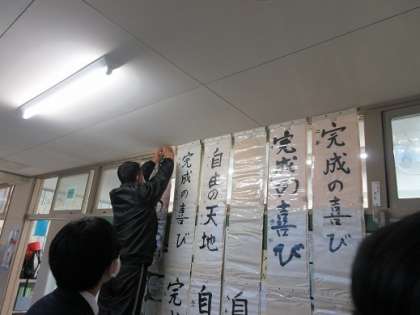 完成の喜び
完成の喜び
自由の天地
完成の喜び
完
自
自